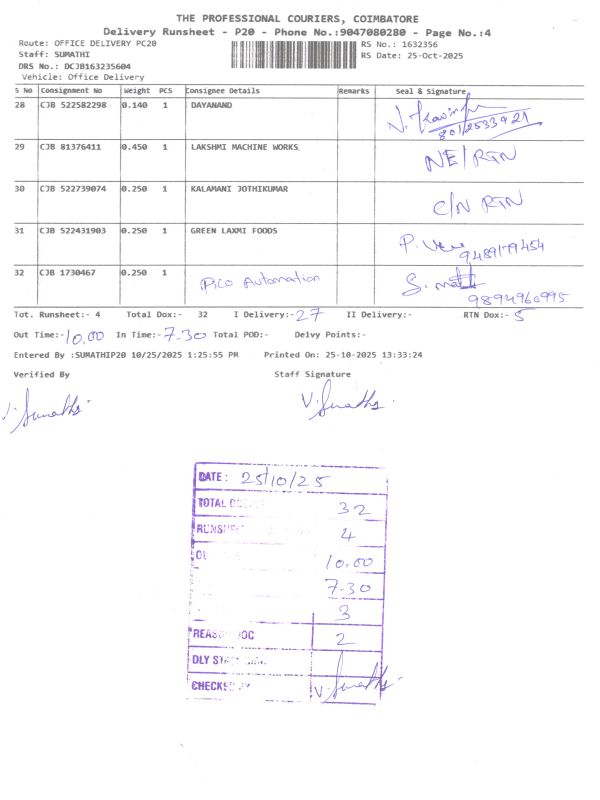 THE PROFESSIONAL COURIERS, COIMBATORE
Delivery Runsheet - P20 - Phone No.:9047080280 - Page No.:4
Route: OFFICE DELIVERY PC20 RS No.: 1632356
Staff: SUMATHI RS Date: 25-Oct-2025
DRS No.: DCJB163235604
Vehicle: Office Delivery
S No Consignment No Weight PCS Consignee Details Remarks Seal & Signature
28 CJB 522582298 0.140 1 DAYANAND 8012533921
29 CJB 81376411 0.450 1 LAKSHMI MACHINE WORKS NE/RTN
30 CJB 522739074 0.250 1 KALAMANI JOTHIKUMAR C/N RTN
31 CJB 522431903 0.250 1 GREEN LAXMI FOODS P. 9489179454
32 CJB 1730467 0.250 1 Pico Automation S. 9894960995
Tot. Runsheet:- 4 Total Dox:- 32 I Delivery:- 27 II Delivery:- RTN Dox:- 5
Out Time:- 10.00 In Time:- 7.30 Total POD:- Delvy Points:-
Entered By :SUMATHIP20 10/25/2025 1:25:55 PM Printed On: 25-10-2025 13:33:24
Verified By Staff Signature
V. Sumathi. V. Sumathi.
DATE: 25/10/25
TOTAL 32
4
10.00
7.30
3
2
DLY
CHECKED V. Sumathi.